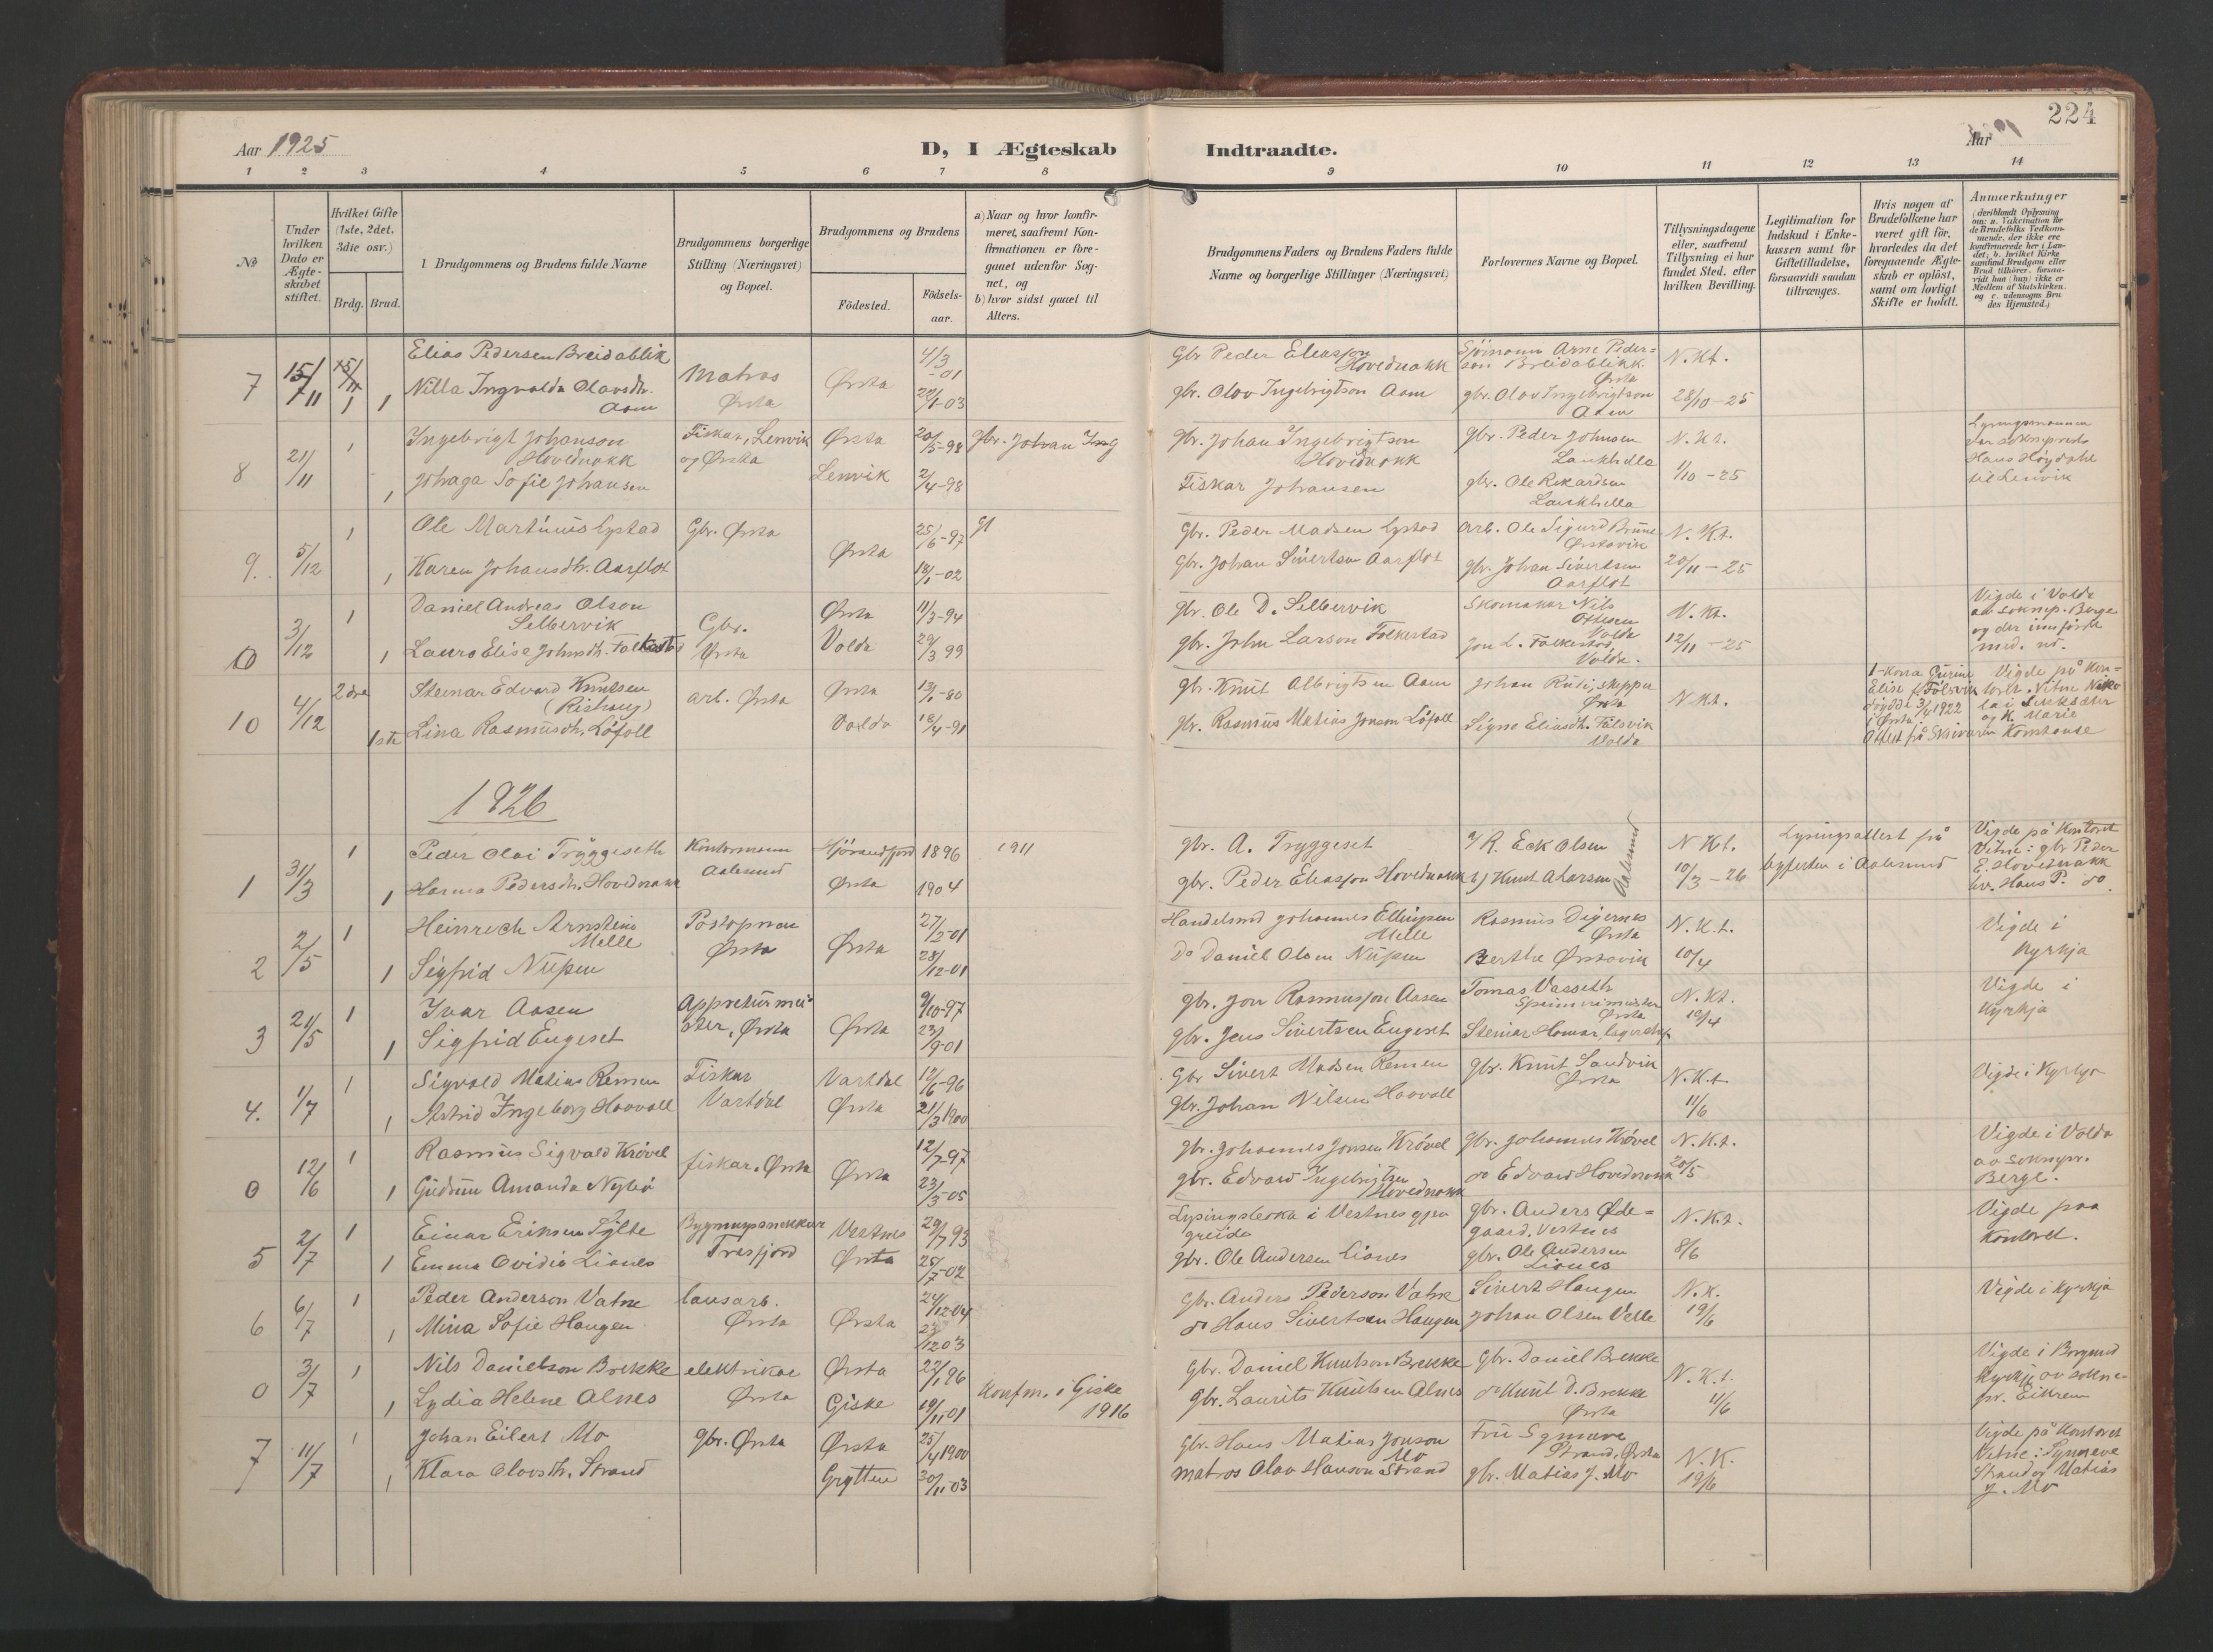 224
Aar 1925
D, I Ægteskab Indtraadte.
Aar
1 2 3 4 5 6 7 8 9 10 11 12 13 14
No
Under hvilken Dato er Ægteskabet stiftet.
Hvilket Gifte (1ste, 2det, 3die osv.)
Brdg. Brud.
1. Brudgommens og Brudens fulde Navne
Brudgommens borgerlige Stilling (Næringsvei) og Bopæl.
Brudgommens og Brudens
Fødested.
Fødselsaar.
a) Naar og hvor konfirmeret, saafremt Konfirmationen er foregaaet udenfor Sognet, og
b) hvor sidst gaaet til Alters.
Brudgommens Faders og Brudens Faders fulde Navne og borgerlige Stillinger (Næringsvei)
Forlovernes Navne og Bopæl.
Tillysningsdagene eller, saafremt Tillysning ei har fundet Sted, efter hvilken Bevilling.
Legitimation for Indskud i Enkekassen samt for Giftetilladelse, forsaavidt saadan tiltrænges.
Hvis nogen af Brudefolkene har været gift før, hvorledes da det foregaaende Ægteskab er opløst, samt om lovligt Skifte er holdt.
Anmærkninger
(deriblandt Oplysning om: a. Vakcination for de Brudefolks Vedkommende, der ikke ere konfirmerede her i Landet; b. hvilket Kirkesamfund Brudgom eller Brud tilhører, forsaavidt han (hun) ikke er Medlem af Statskirken, og c. udensogns Brudes Hjemsted.)
7 15/11 1 Elias Pedersen Breidablik Matros Ørsta Ørsta 4/3-01 Gbr Peder Eliasson Hovednakk Sjømann Arne Pederson Breidablikk Ørsta N.Kt.
1 Nilla Ingvalda Olavsdtr. Aam 22/1-03 gbr. Olav Ingebrigtson Aam gbr. Olav Ingebrigtson Aam 28/10-25
8 21/11 1 Ingebrigt Johanson Hovednakk Fiskar, Lenvik og Ørsta Ørsta 20/5-98 gbr. Johan Ingebrigtson Hovednakk gbr. Peder Johnsen N.Kt.
1 Johaga Sofie Johansen Lenvik 2/4-98 Fiskar Johansen gbr. Ole Rikardsen 1/10-25
til Lenvik
9. 5/12 1 Ole Martinus Lystad Gbr. Ørsta Ørsta 25/6-97 gbr. Peder Madsen Lystad arb. Ole Sigurd Brune Ørstavik N.Kt.
1 Karen Johansdtr. Aarflot 18/1-02 gbr. Johan Sivertsen Aarflot gbr. Johan Sivertsen Aarflot 20/11-25
10 3/12 1 Daniel Andreas Olson Selbervik Gbr. Ørsta Ørsta 11/3-94 gbr. Ole D. Selbervik Skomakar Nils Ottesen Volda N.Kt. Vigde i Volda av soknepr. Berge og der innførde med. no.
1 Laura Elise Johnsdtr. Folkestad Volda 29/3 99 gbr. John Larson Folkestad Jon L. Folkestad Volda. 12/11-25
10 4/12 2dre Steinar Edvard Knutsen (Rishaug) arb. Ørsta Ørsta 13/1-80 gbr. Knut Albrigtsen Aam Johan Rusi, skipper Ørsta N.Kt.
1ste Lina Rasmusdtr. Løfoll Volda 18/4-91 gbr. Rasmus Matias Jonsen Løfoll Signe Eliasdtr. Følsvik Volda
1926
1 31/3 1 Peder Olai Tryggeseth Kontormann Aalesund Hjørundfjord 1896 1911 gbr. A. Tryggeset R. Eck Olsen Aalesund N.Kt. Lysingsattest på Vigde på Kontoret
1 Hanna Pedersdtr. Hovednakk Ørsta 1904 gbr. Peder Eliasson Hovednakk Knut A Larsen 10/3-26 byfuten i Aalesund Vitne: gbr Peder E. Hovednakk
2 2/5 1 Heinrich Arnstein Melle Postopnar Ørsta Ørsta 27/2-01 Handelsmd Johannes Ellingsen Melle Rasmus Digernes Ørsta N.K.t. Vigde i kyrkja
1 Sigfrid Nupen 28/12-01 Do Daniel Olsen Nupen Berthe Ørstavik 10/4
3 21/5 1 Ivar Aasen Appreturmeister, Ørsta Ørsta 9/10-97 gbr. Jon Rasmusson Aasen Tomas Vasseth Spinnimeister Ørsta N.Kt. Vigde i kyrkja
1 Sigfrid Engeset 23/9-01 gbr. Jens Sivertsen Engeset 10/4
4. 1/7 1 Sigvald Matias Remen Fiskar Vartdal Vartdal 12/6-96 Gbr Sivert Madsen Remen gbr. Knut Sandvik Ørsta N.K.t Vigde i Kyrkja
1 Astrid Ingeborg Hoovoll Ørsta 21/3 1900 gbr. Johan Nilsen Hoovoll 11/6
0 12/6 1 Rasmus Sigvald Krøvel fiskar. Ørsta Ørsta 12/7-97 gbr. Johannes Jonsen Krøvel gbr. Johannes Krøvel N.K.t. Vigde i Volda av soknepr. Berge.
1 Gudrun Amanda Nybø 23/3-05 gbr. Edvard Ingebrigtsen Hovednakk do Edvard Hovednakk 20/5
5 2/7 1 Einar Eriksen Sylte Bygningssnekkar Tresfjord Vestnes 29/7 93 gbr. Anders Ødegaard, Vestnes N.K.t. Vigde paa Kontoret.
1 Emma Ovidia Lianes Ørsta 25/7-02 gbr. Ole Andersen Lianes gbr. Ole Andersen Lianes 8/6
6 6/7 1 Peder Anderson Vatne lausarb. Ørsta Ørsta 24/12-04 Gbr. Anders Pederson Vatne Sivert Haugen N.K. Vigde i kyrkja
1 Mina Sofie Haugen 23/12 03 do Hans Sivertsen Haugen Johan Olsen Velle 19/6
0 3/7 1 Nils Danielson Brekke elektrikar Ørsta Ørsta 22/1 96 Gbr. Daniel Knutson Brekke Gbr. Daniel Brekke N.K.t. Vigde i Borgund kyrkje av soknepr. Eikrem
1 Lydia Helene Alnes Giske 19/11-01 Konfm. i Giske 1916 Gbr. Laurits Knutsen Alnes do Knut D. Brekke Ørsta 11/6
7 11/7 1 Johan Eilert Mo gbr. Ørsta Ørsta 25/4 1900 Gbr. Hans Matias Jonson Mo Fru Synneve Strand, Ørsta N.K. Vigde på Kontoret
1 Klara Olavsdtr. Strand Grytten 30/11-03 matros Olav Hanson Strand gbr. Matias J. Mo 19/6 Vitne: Synneve Strand og Matias J. Mo